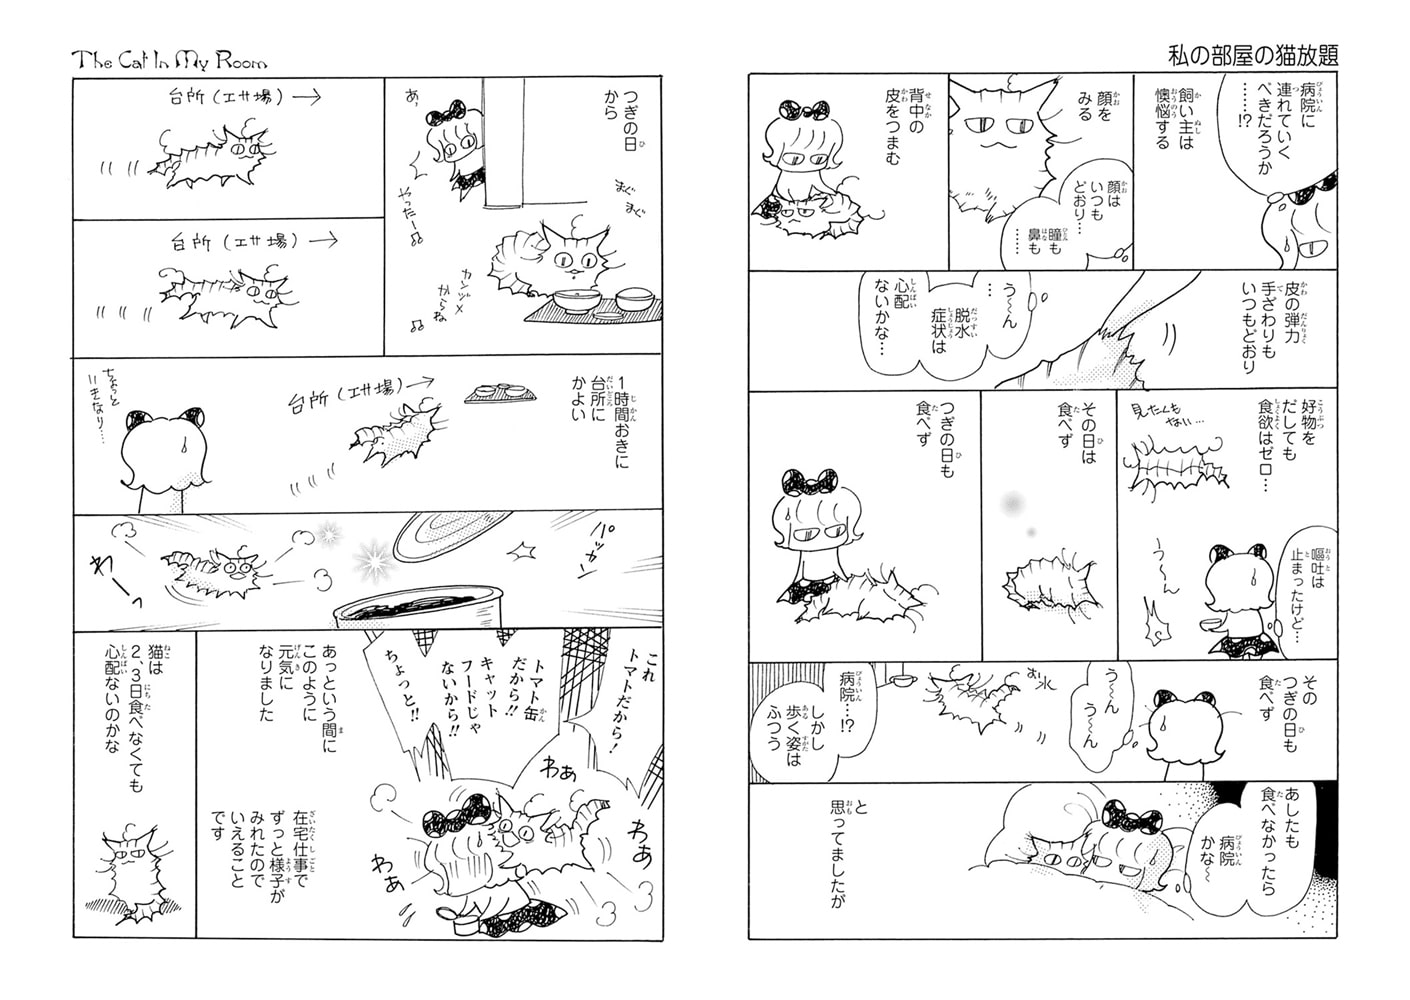 私の部屋の猫放題
病院に
連れていく
べきだろうか
……!?
飼い主は
懊悩する
顔を
みる
顔は
いつも
どおり…
瞳も
鼻も
……
背中の
皮をつまむ
皮の弾力
手ざわりも
いつもどおり
う〜ん
…
脱水
症状は
心配
ないかな…
好物を
だしても
食欲はゼロ…
見たくも
ない…
嘔吐は
止まったけど…
う〜ん
その日は
食べず
つぎの日も
食べず
その
つぎの日も
食べず
う〜ん
う〜ん
お水
病院…!?
しかし
歩く姿は
ふつう
あしたも
食べなかったら
病院
かな〜
と
思ってましたが
The Cat In My Room
つぎの日
から
あ、
やったー♫
まぐ
まぐ
カンヅメ
からね
♫
台所(エサ場)→
台所(エサ場)→
1時間おきに
台所に
かよい
台所(エサ場)→
ちょっと
いきなり…
パッカン
わーっ
これ
トマトだから!
トマト缶
だから!!
キャット
フードじゃ
ないから!!
ちょっと!!
わぁ
わぁ
わぁ
あっという間に
このように
元気に
なりました
在宅仕事で
ずっと様子が
みれたので
いえること
です
猫は
2、3日食べなくても
心配ないのかな